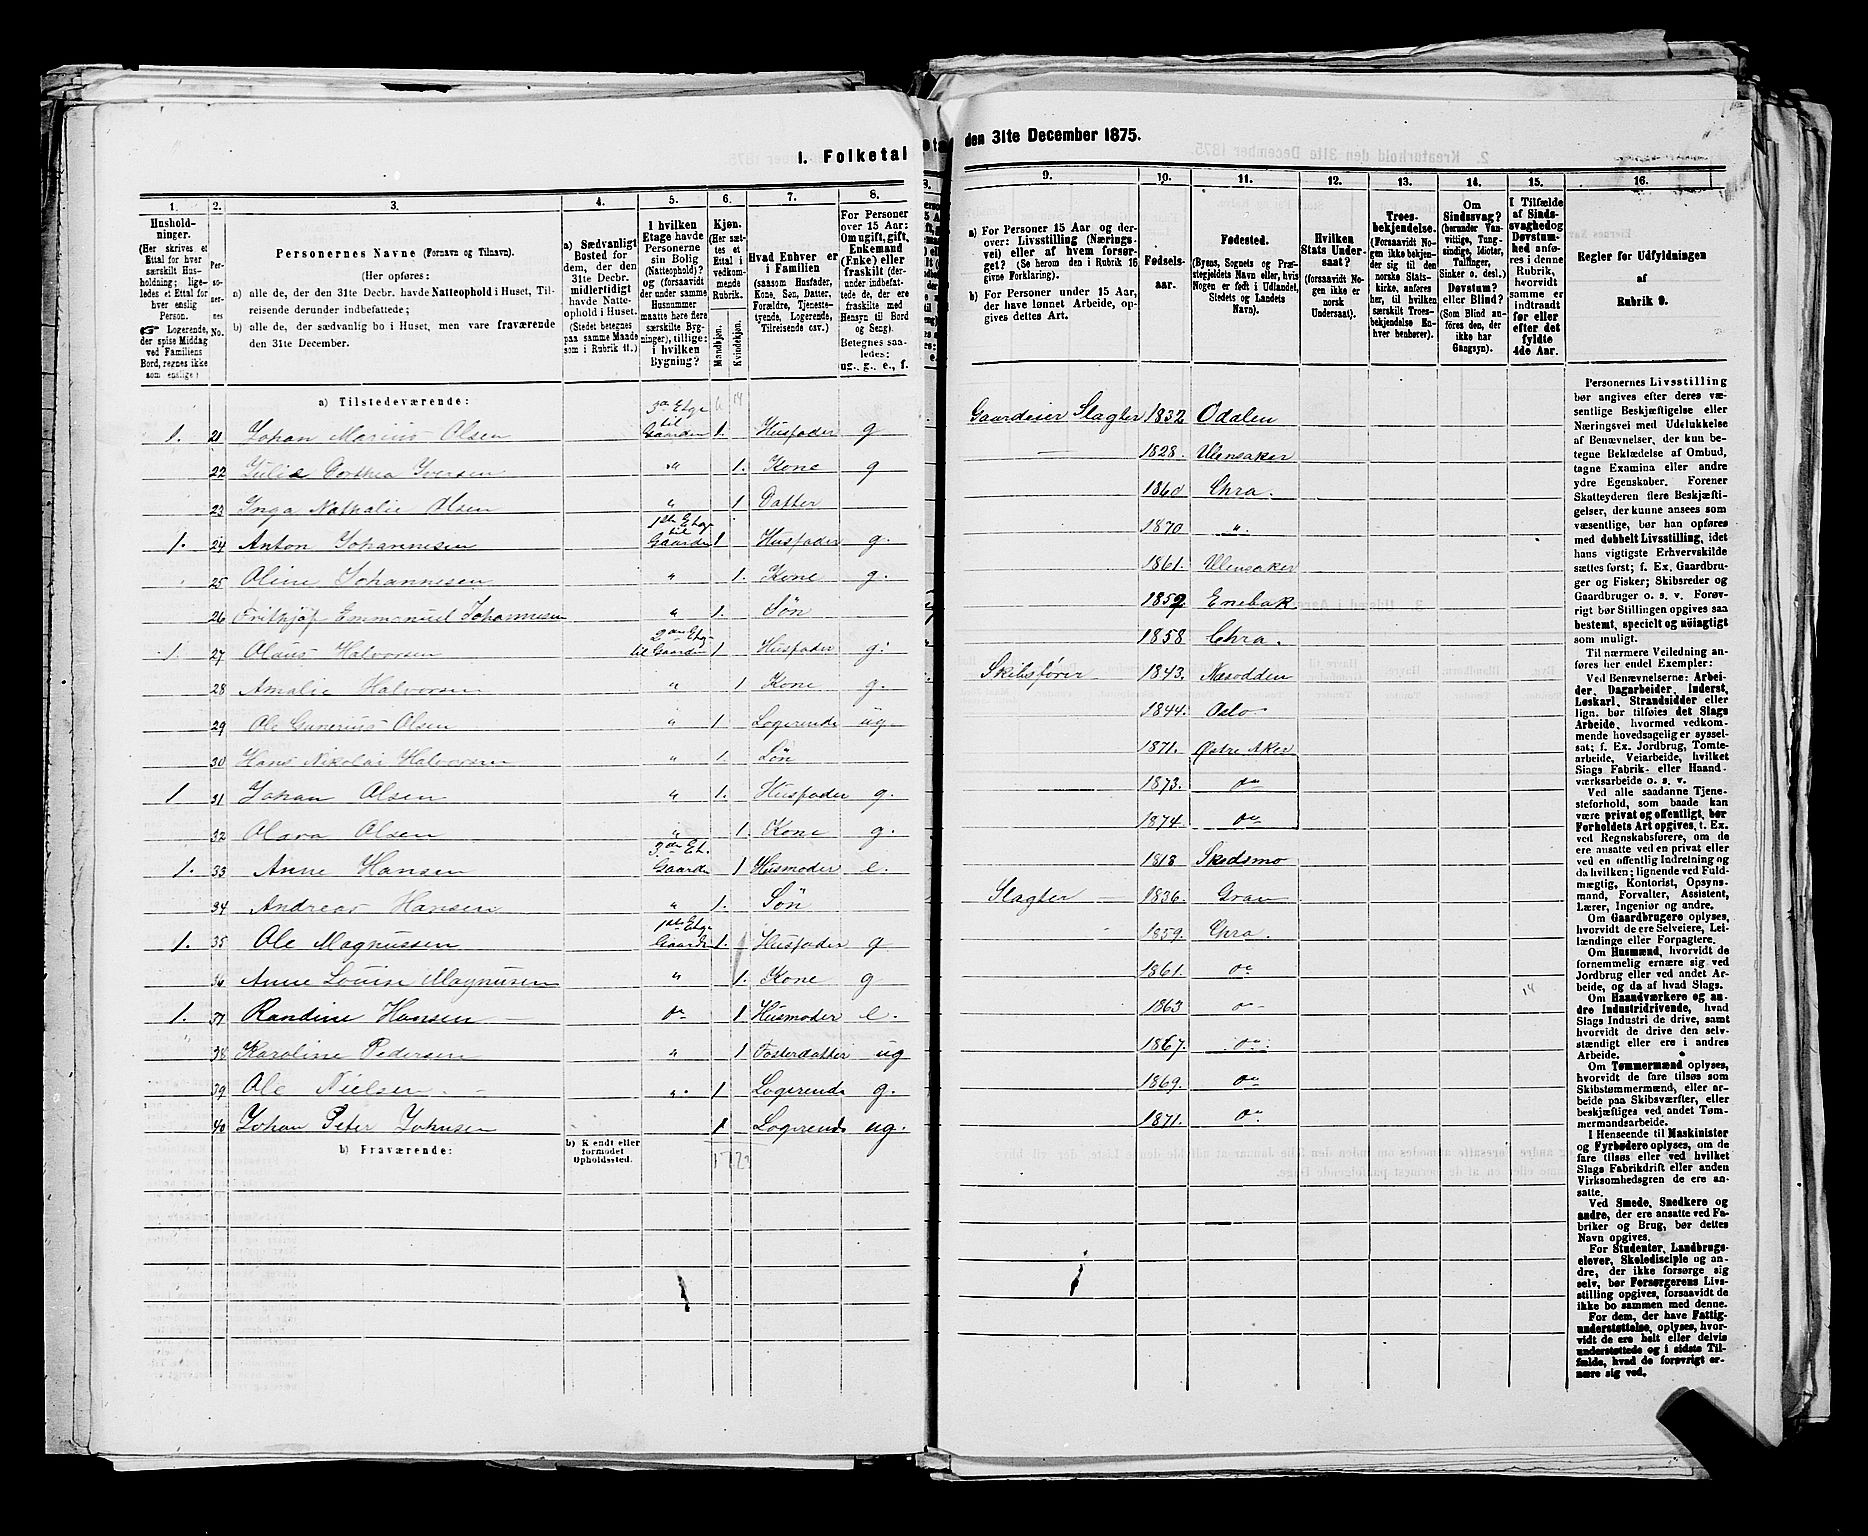 I. Folketal
den 31te December 1875.
1. 2. 3. 4. 5. 6. 7. 8.
Husholdninger.
(Her skrives et
Ettal for hver
særskilt Husholdning;
ligeledes
et Ettal for
hver enslig
Person.
Logerende,
der spise Middag
ved Familiens
Bord, regnes ikke
som enslige.)
Personernes No.
Personernes Navne (Fornavn og Tilnavn).
(Her opføres:
a) alle de, der den 31te Decbr. havde Natteophold i Huset, Tilreisende derunder indbefattede;
b) alle de, der sædvanlig bo i Huset, men vare fraværende
den 31te December.
a) Sædvanligt
Bosted for
dem, der den
31te Decbr.
midlertidigt
havde Natteophold
i Huset.
(Stedet betegnes
paa samme Maade
som i Rubrik 11.)
I hvilken
Etage havde
Personerne
sin Bolig
(Natteophold)?
(og forsaavidt
der under samme
Husnummer
maatte høre flere
særskilte Bygninger),
tillige:
i hvilken
Bygning?
Kjøn.
(Her sættes
et
Ettal i
vedkommende
Rubrik.
Mandkjøn. Kvindekjøn.
Hvad Enhver er
i Familien
(saasom Husfader,
Kone, Søn, Datter,
Forældre, Tjenestetyende,
Logerende,
Tilreisende osv.)
For Personer
over 15 Aar:
Om ugift, gift,
Enkemand
(Enke) eller
fraskilt (derunder
indbefattede
de, der ere
fraskilte med
Hensyn til Bord
og Seng).
Betegnes saaledes:
ug., g., e., f.
a) Tilstedeværende:
1. 21 Johan Marius Olsen 3die Etge til Gaarden 1. Husfader g
22 Julie Dorthea Iversen " 1. Kone g
23 Inga Nathalie Olsen " 1 Datter
1. 24 Anton Johannesen 1ste Etage til Gaarden 1 Husfader g.
25 Oline Johannesen " 1. Kone g.
26 Frithjof Emmanuel Johannesen " 1. Søn
1. 27 Olaus Halvorsen 2den Etge til Gaarden 1 Husfader g.
28 Amalie Halvorsen " 1 Kone g.
29 Ole Gunerius Olsen " 1 Logerende ug
30 Hans Nikolai Halvorsen " 1. Søn
1 31 Johan Olsen " 1. Husfader g.
32 Olava Olsen " 1. Kone g.
1. 33 Anne Hansen 3die Et. Gaarde 1 Husmoder e.
34 Andreas Hansen " 1. Søn
1. 35 Ole Magnussen 1ste Etge Gaarde 1. Husfader g
36 Anne Louise Magnusen " 1. Kone g
1. 37 Randine Hansen do 1 Husmoder e.
38 Karoline Pedersen " 1 Fosterdatter ug
39 Ole Nielsen " 1 Logerende g.
40 Johan Peter Johnsen 1 Logerende ug.
b) Fraværende:
b) Kjendt eller
formodet
Opholdssted.
9. 10. 11. 12. 13. 14. 15. 16.
a) For Personer 15 Aar og derover:
Livsstilling (Næringsvei)
eller af hvem forsørget?
(Se herom den i Rubrik 16
givne Forklaring).
b) For Personer under 15 Aar,
der have lønnet Arbeide, opgives
dettes Art.
Fødselsaar.
Fødested.
(Byens, Sognets og Præstegjeldets
Navn eller, hvis
Nogen er født i Udlandet,
Stedets og Landets
Navn).
Hvilken
Stats Undersaat?
(forsaavidt Nogen
ikke er
norsk
Undersaat).
Troesbekjendelse.
(Forsaavidt Nogen
ikke bekjender
sig til den
norske Statskirke,
anføres
her, til hvilken
særskilt Troesbekjendelse
Enhver
henhører).
Om
Sindssvag?
(herunder Vanvittige,
Tungsindige,
Idioter,
Tullinger,
Sinker o. desl.)
Døvstum?
eller Blind?
(Som Blind anføres
den, der
ikke har
Gangsyn).
I Tilfælde
af Sindssvaghed
og
Døvstumhed
anføres
i denne
Rubrik,
hvorvidt
samme er
indtraadt
før eller
efter det
fyldte
4de Aar.
Regler for Udfyldningen
af
Rubrik 9.
Gaardeier Slagter 1832 Odalen
1828. Ulensaker
1860 Chra.
1870 "
1861. Ulensaker
1852 Enebak
1858 Chra.
Skibsfører 1843. Næsodden
1844. Oslo
1871. Østre Aker
1873. do
1874. do
1818 Skedsmo
Slagter 1836. Gran
1859. Chra.
1861. do
1863 do
1867. do
1869. do
1871. do
Personernes Livsstilling
bør angives efter deres væsentlige
Beskjæftigelse eller
Næringsvei med Udelukkelse
af Benævnelser, der kun betegne
Beklædelse af Ombud,
tagne Examina eller andre
ydre Egenskaber. Forener
Skatteyderen flere Beskjæftigelser,
der kunne ansees som
væsentlige, bør han opføres
med dobbelt Livsstilling, idet
hans vigtigste Erhvervskilde
sættes først; f. Ex. Gaardbruger
og Fisker; Skibsreder og
Gaardbruger o. s. v. Forøvrigt
bør Stillingen opgives saa
bestemt, specielt og nøiagtigt
som muligt.
Til nærmere Veiledning anføres
her endel Exempler:
Ved Benævnelserne: Arbeider,
Dagarbeider, Inderst,
Løskarl, Strandsidder eller
lign. bør tilføies det Slags
Arbeide, hvormed vedkommende
hovedsagelig er sysselsat;
f. Ex. Jordbrug, Tomtearbeide,
Veiarbeide, hvilket
Slags Fabrik- eller Haandværksarbeide
o. s. v.
Ved alle saadanne Tjenesteforhold,
som baade kan
være privat og offentligt, bør
Forholdets Art opgives, t. Ex.
ved Regnskabsførere, om de
ere ansatte ved en privat eller
ved en offentlig Indretning og
da hvilken; lignende ved Fuldmægtig,
Kontorist, Opsynsmand,
Forvalter, Assistent,
Lærer, Ingeniør og andre.
Om Gaardbrugere oplyses,
hvorvidt de ere Selveiere, Leilændinge
eller Forpagtere.
Om Husmænd, hvorvidt de
fornemmelig ernære sig ved
Jordbrug eller ved andet Arbeide,
og da af hvad Slags.
Om Haandværkere og andre
Industridrivende, hvad
Slags Industri de drive, samt
hvorvidt de drive den selvstændigt
eller ere i andres
Arbeide.
Om Tømmermænd oplyses,
hvorvidt de fare tilsøs som
Skibstømmermænd, eller arbeide
paa Skibsværfter, eller
beskjæftiges ved andet Tømmermandsarbeide.
I Henseende til Maskinister
og Fyrbødere oplyses, om de
fare tilsøs eller ved hvilket
Slags Fabrikdrift eller anden
Virksomhedsgren de ere ansatte.
Ved Smede, Snedkere og
andre, der ere ansatte ved Fabriker
og Brug, bør dettes
Navn opgives.
For Studenter, Landbrugselever,
Skoledisciple og andre,
der ikke forsørge sig
selv, bør Forsørgerens Livsstilling
opgives, forsaavidt de
ikke bo sammen med denne.
For dem, der have Fattigunderstøttelse,
oplyses, hvorvidt
de ere helt eller delvis
understøttede og i sidste Tilfælde,
hvad de forøvrigt ernære
sig ved.